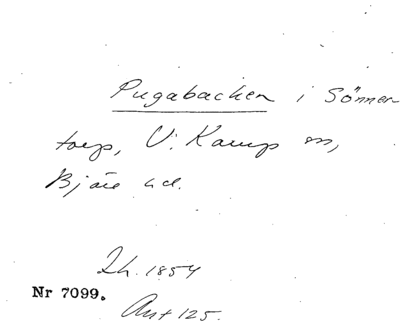 Pugabacken i Sönner-
torp, V. Karup sn,
Bjäre hd.
Lh. 1854
Nr 7099.
Ant 125.